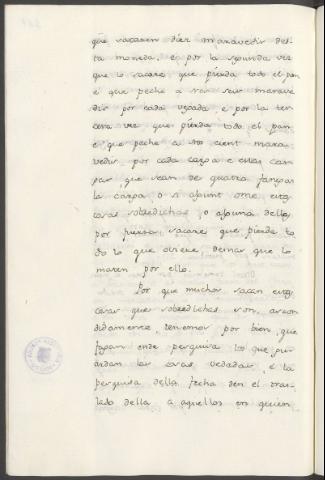 que sacaren diez maravedis des-
ta moneda. E por la segunda vez
que lo sacare, que pierda todo el pan
e que peche a nos seis marave
dis por cada vegada e por la ter
cera vez que pierda todo el pan
e que peche a nos cient mara-
vedis por cada carga e estas car-
gas, que sean de quatro fanegas
la carga, o si algunt ome estas
cosas sobredichas, o alguna dellas
por fuerza sacare que pierda to
do lo que oviere, demas que lo
maten por ello.
Por que muchos sacan estas
cosas que sobredichas son, ascon
didamente, tenemos por bien, que
fagan ende pesquisa los que gui
ardam las cosas vedadas, e la
pesquisa della fecha den el tras-
lado della a aquellos en quien